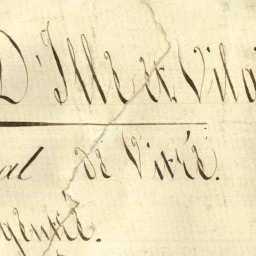 D'Ille et Vila
al de Vitré.